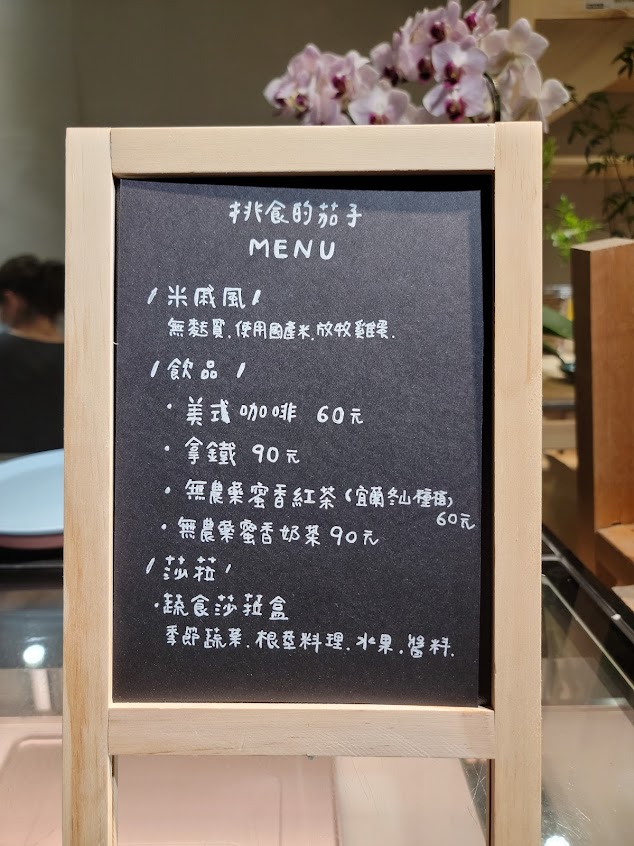 挑食的茄子
MENU
/米戚風/
無麩質.使用國產米.放牧雞蛋.
/飲品/
·美式咖啡 60元
·拿鐵 90元
·無農藥蜜香紅茶(宜蘭冬山種植)
60元
·無農藥蜜香奶茶90元
/莎菈/
·蔬食莎菈盒
季節蔬菜.根莖料理.水果.醬料.